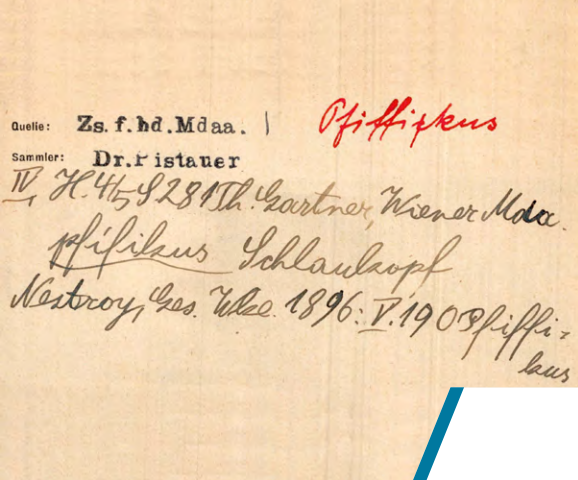 Pfiffikus
Quelle: Zs. f. hd. Mdaa.
Sammler: Dr. Pistauer
IV, H. 4/5 S 281 Th. Gartner, Wiener Mda.
pfifikus Schlaukopf
Nestroy, Ges. Wke. 1896: V. 190 Pfiffi=
kus